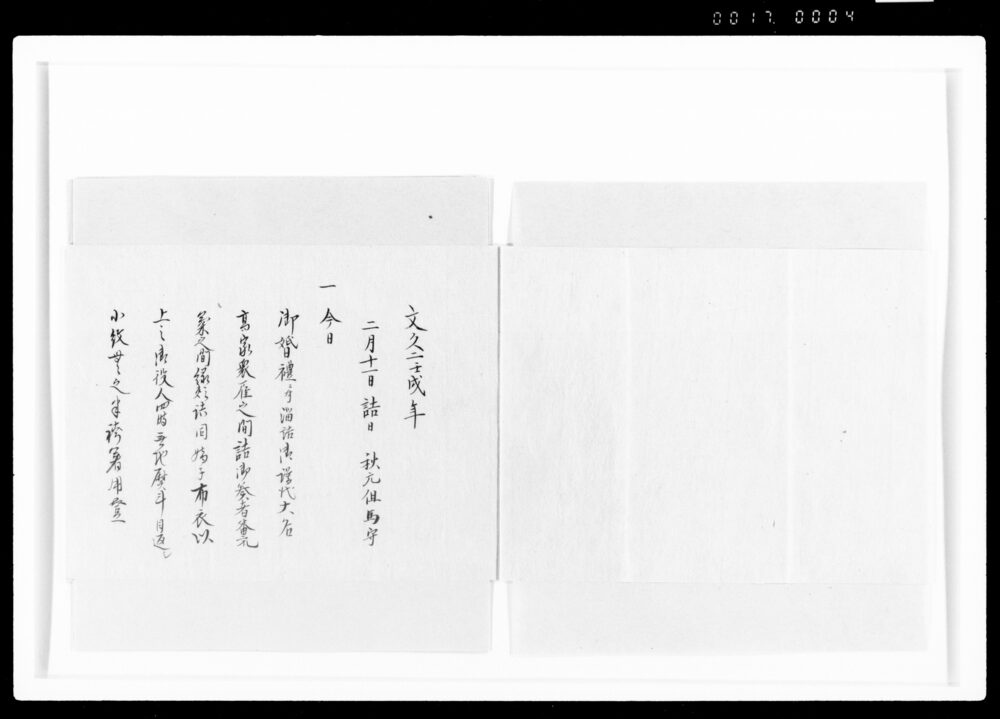 0017. 0004
文久二壬戌年
二月十一日 詰日 秋元但馬守
一 今日
御婚禮ニ付溜詰御譜代大名
高家衆雁之間詰御奏者番
菊之間縁頬詰同嫡子布衣以
上之御役人四時無地熨斗目返し
小紋 半袴着用登